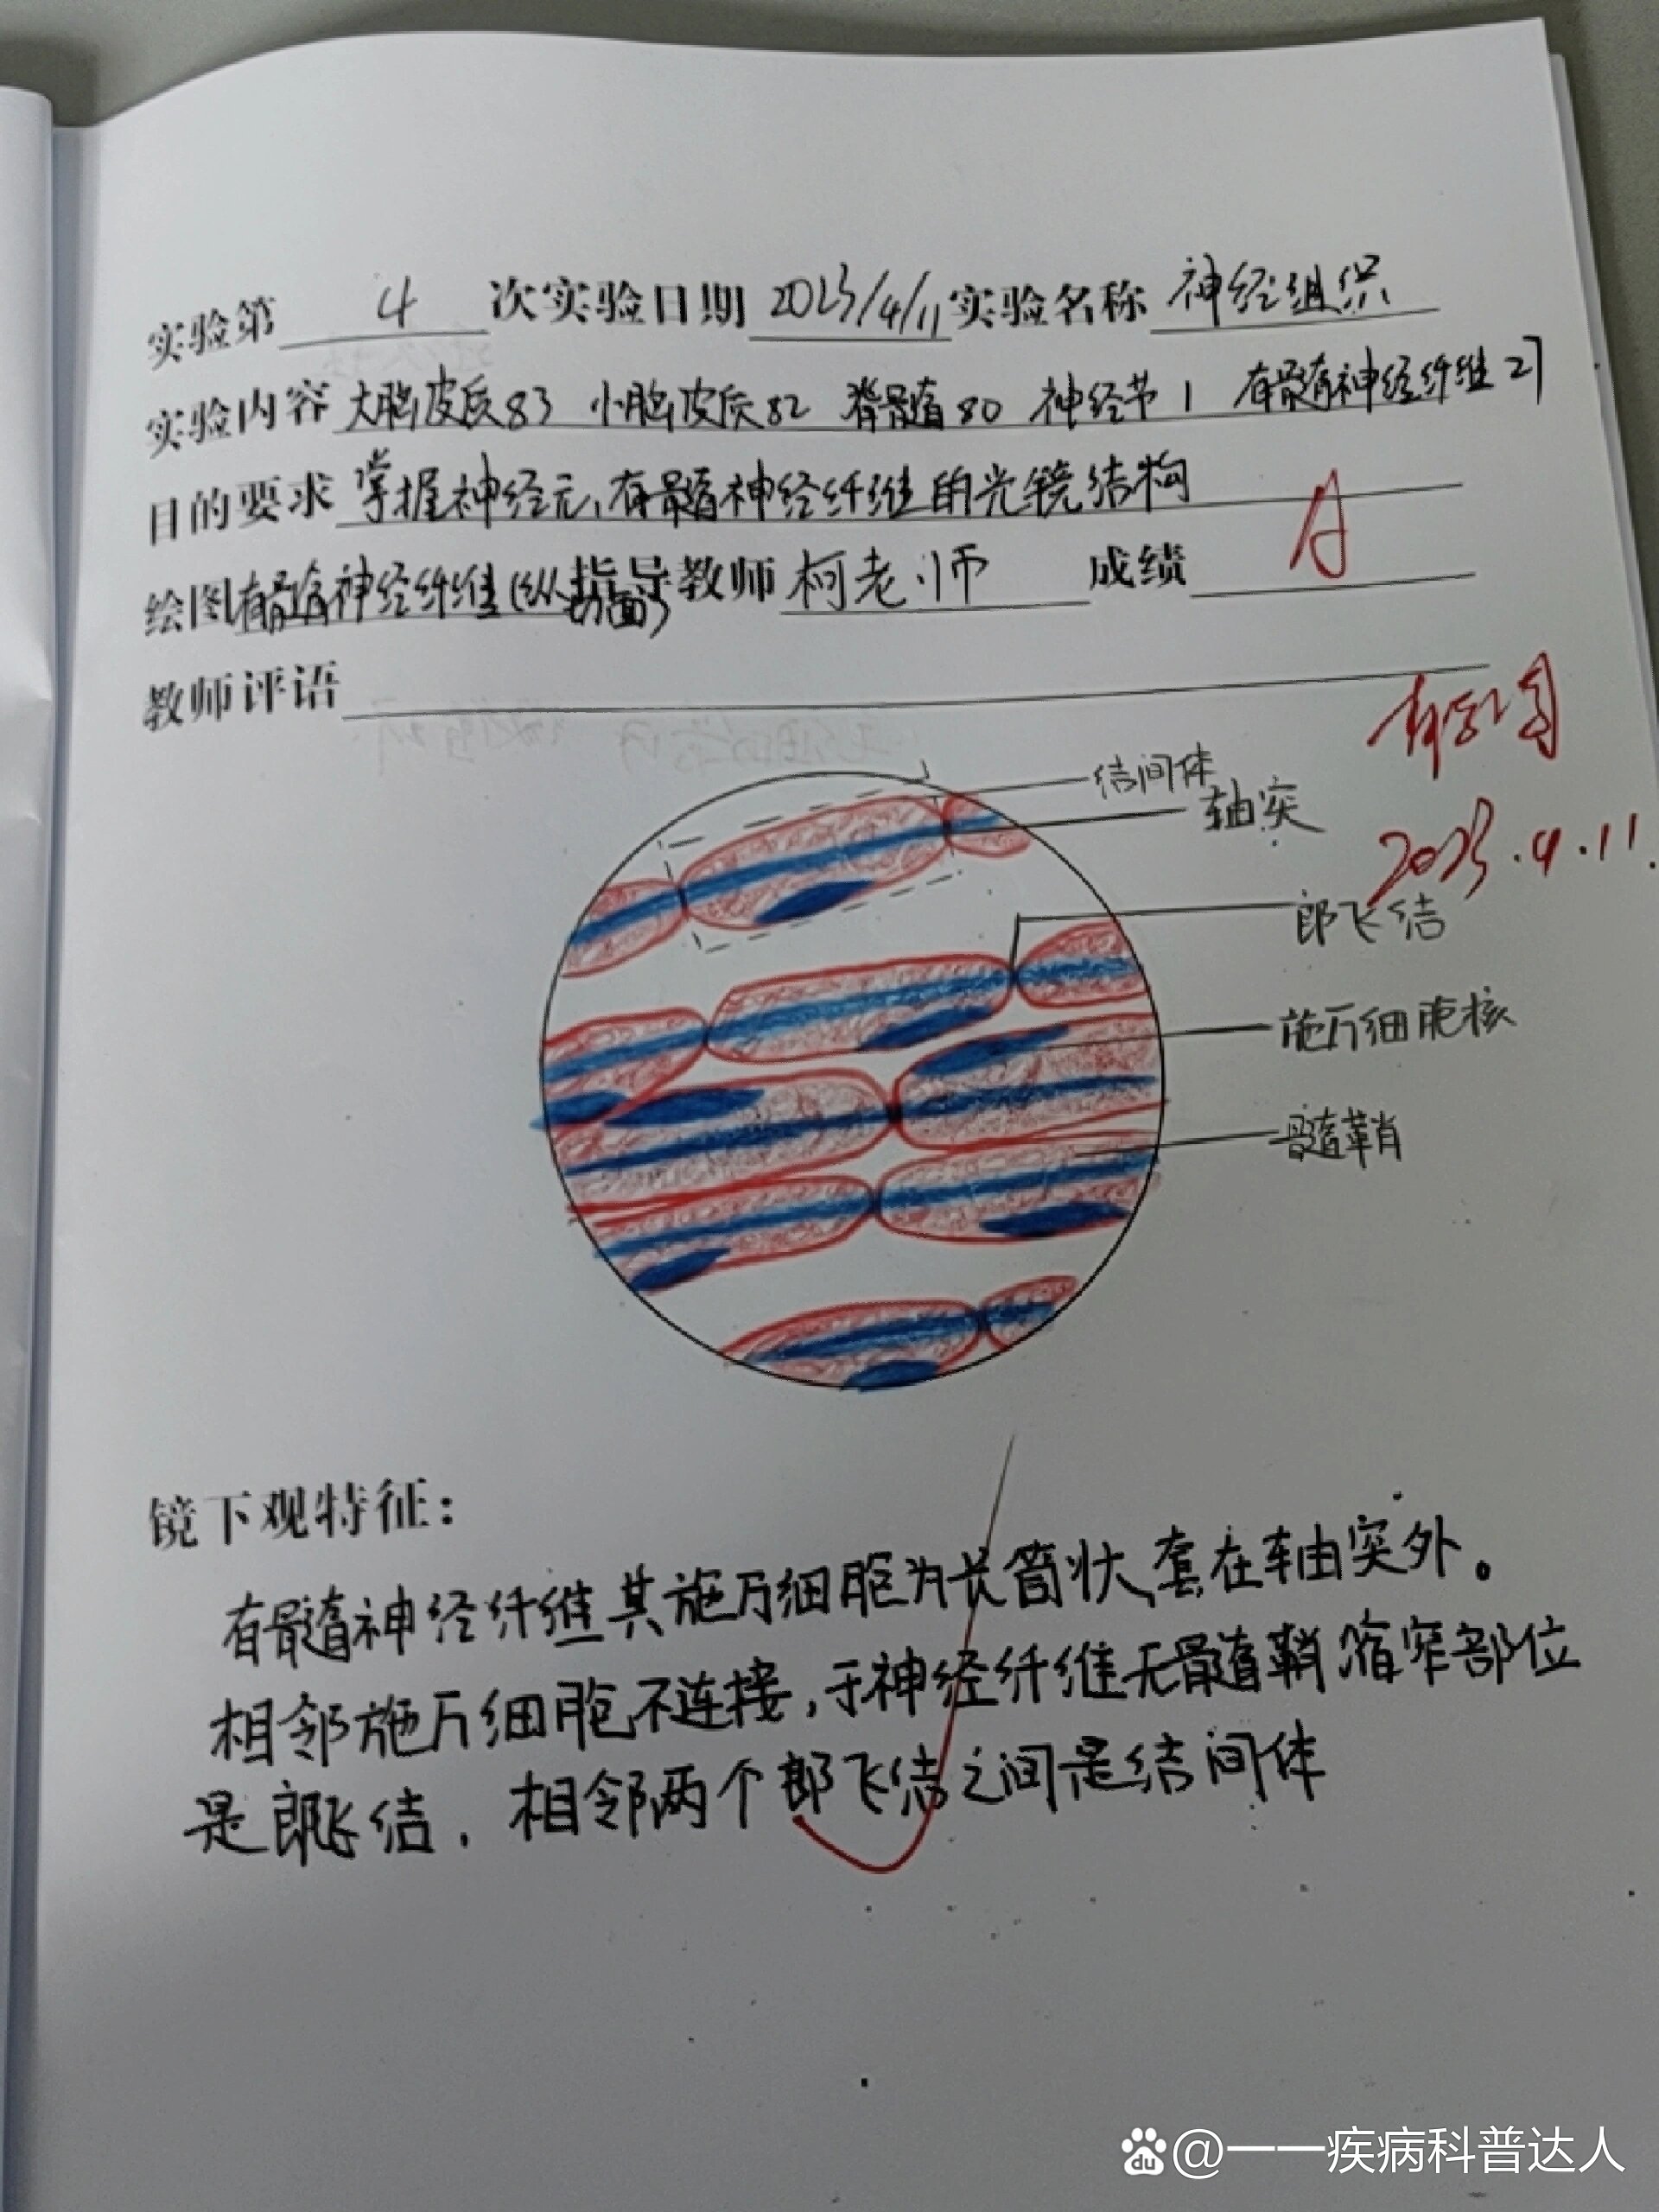 实验第 4 次实验日期 2023/4/11 实验名称 神经组织
实验内容 大脑皮质83 小脑皮质82 脊髓80 神经节1 有髓神经纤维27
目的要求 掌握神经元,有髓神经纤维的光镜结构
绘图 有髓神经纤维(纵切面) 指导教师 柯老师 成绩 A
教师评语
结间体
轴突
2023.4.11
郎飞结
施万细胞核
髓鞘
镜下观特征:
有髓神经纤维其施万细胞为长筒状,套在轴突外。
相邻施万细胞不连接,于神经纤维无髓鞘缩窄部位
是郎飞结.相邻两个郎飞结之间是结间体
du @一一疾病科普达人